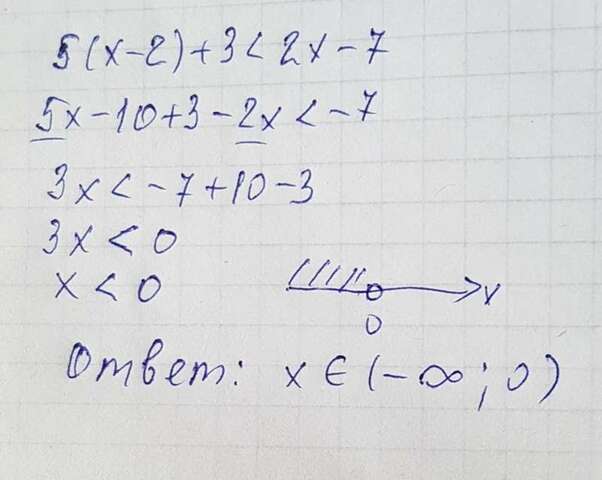 5(x-2)+3<2x-7
5x-10+3-2x<-7
3x<-7+10-3
3x<0
x<0
x
0
Ответ: x∈(-∞;0)